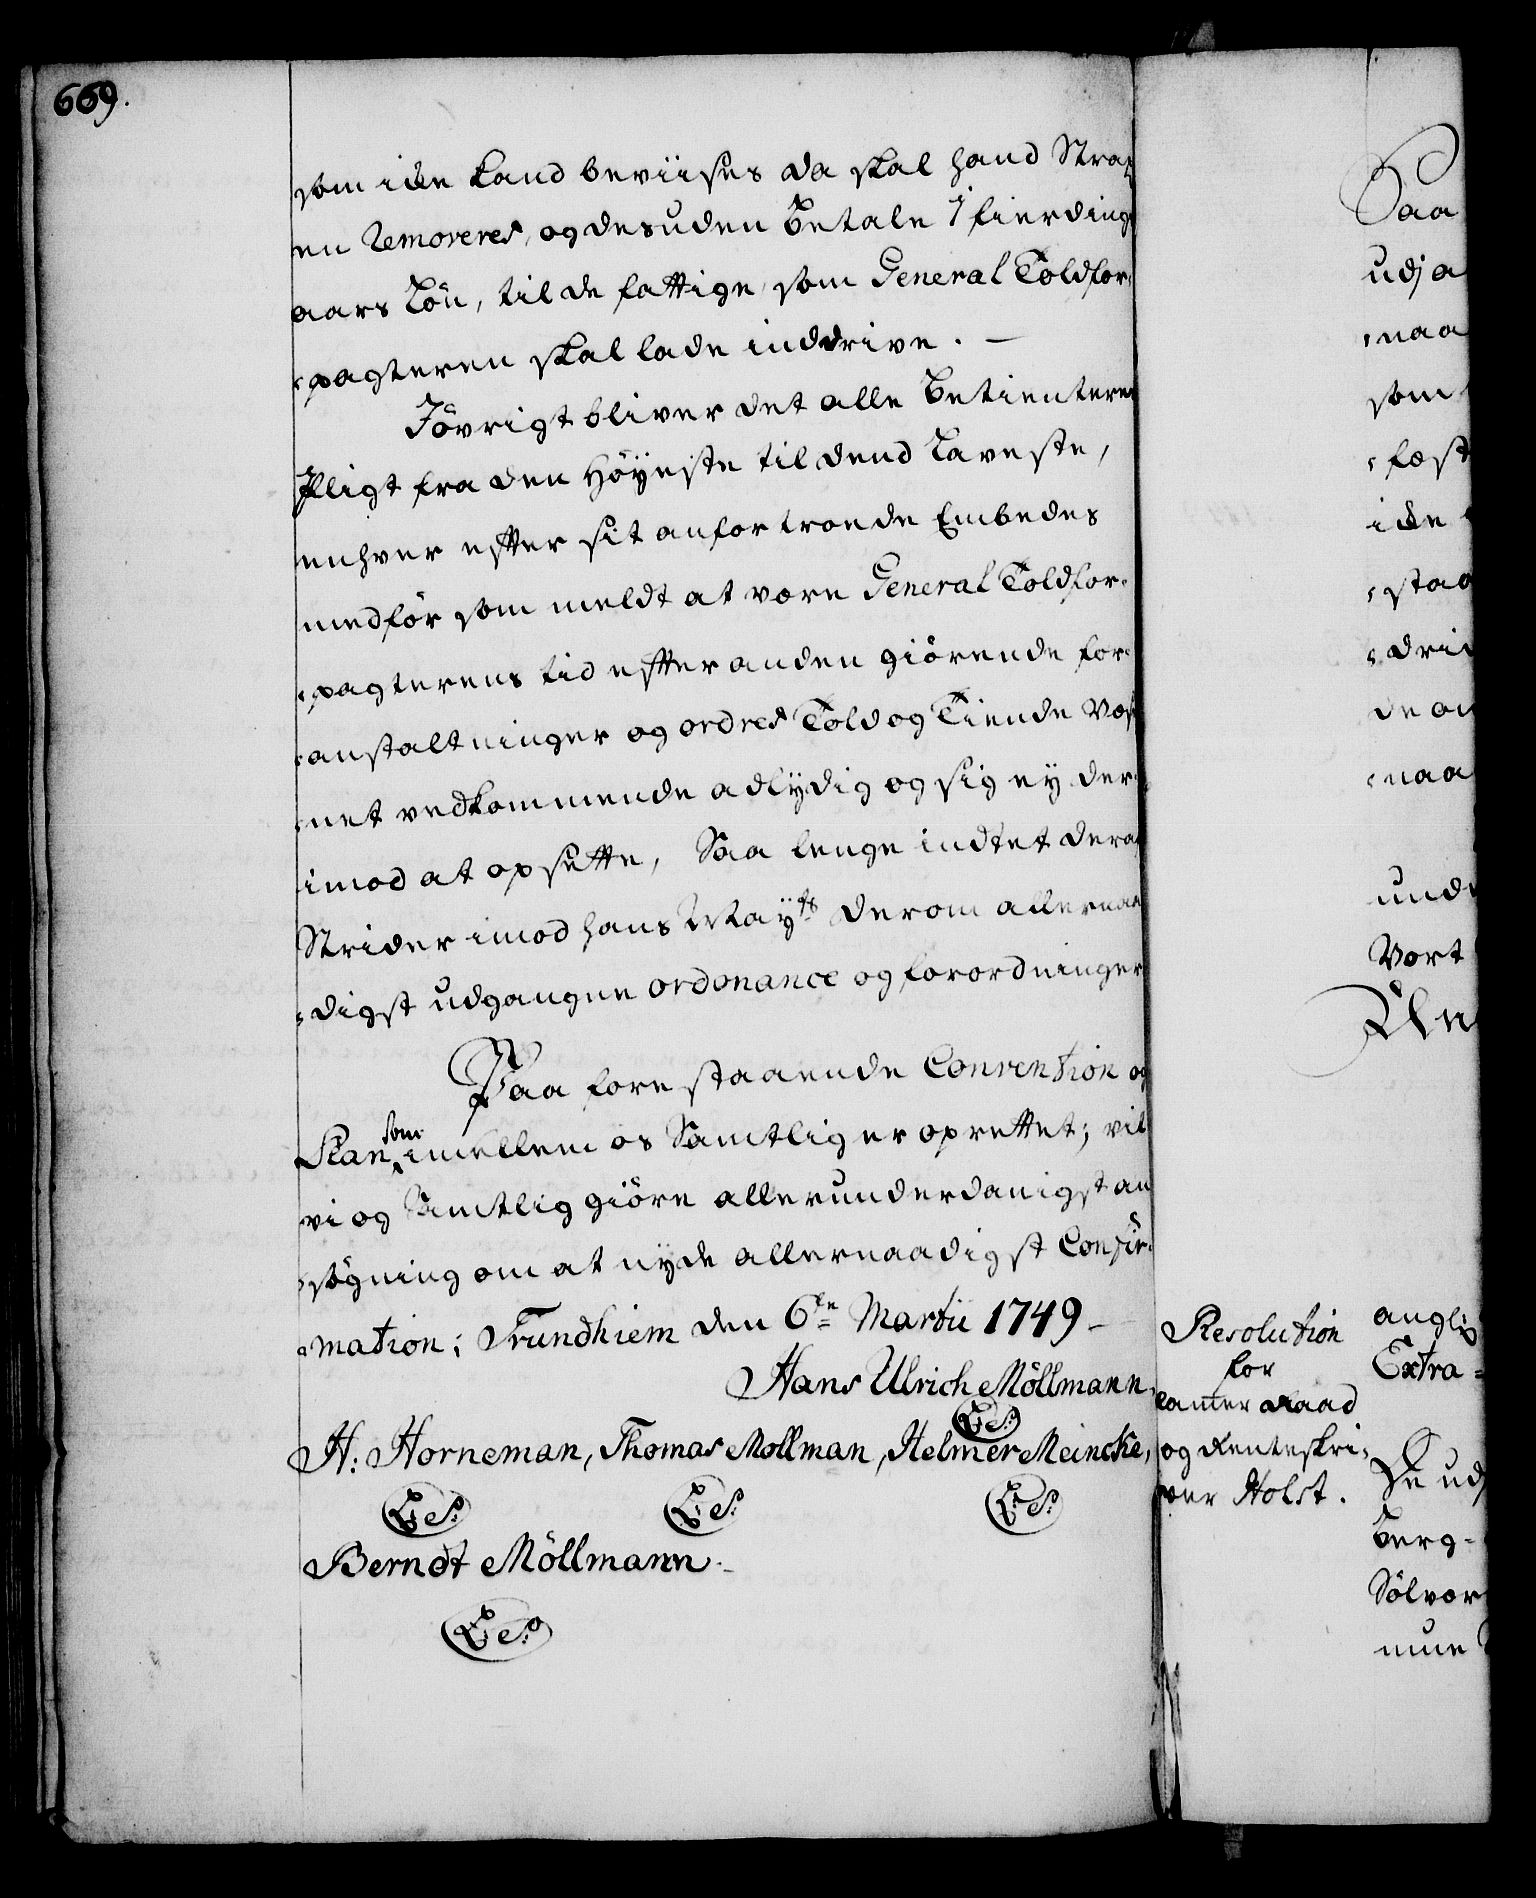 669.
som icke kand beviises da skal hand Strax
en removeres, og desuden betale 1 fierding
aars Lön, til de fattige, som General Toldfor-
pagteren skal lade inddrive. —
Iövrigt bliver det alle Betienteres
Pligt fra den Höyeste til dend Laveste,
enhver efter sit anfortroede Embedes
medför som meldt at være General Toldfor-
pagterens tid efter anden giörende for-
anstaltninger og ordres Told og Tiende Væs-
net vedkommende adlydig og sig ey der-
imod at opsette, Saa lenge indtet deraf
Strider imod hans Mayts derom allernaa-
digst udgangne ordonance og forordninger
Paa forestaaende Convention og
Plan som imellem os Samtlig er oprettet; vil
vi og Samtlig giöre allerunderdanigst an
sögning om at nyde allernaadigst Confir-
mation; Trundhiem den 6te Martii 1749 –
Hans Ulrich Möllmann,
L.S.
H: Horneman, Thomas Mollman, Helmer Meincke,
L.S. L.S. L.S.
Berndt Möllmann.
L.S.
Resolution
for
Camer Raad
og Renteskri-
ver Holst.
Saa
udj a
naa
som
fæst
icke
staa
naa
unde
Vort
angl:
Extra-
De udj
Berg-
Sölvær